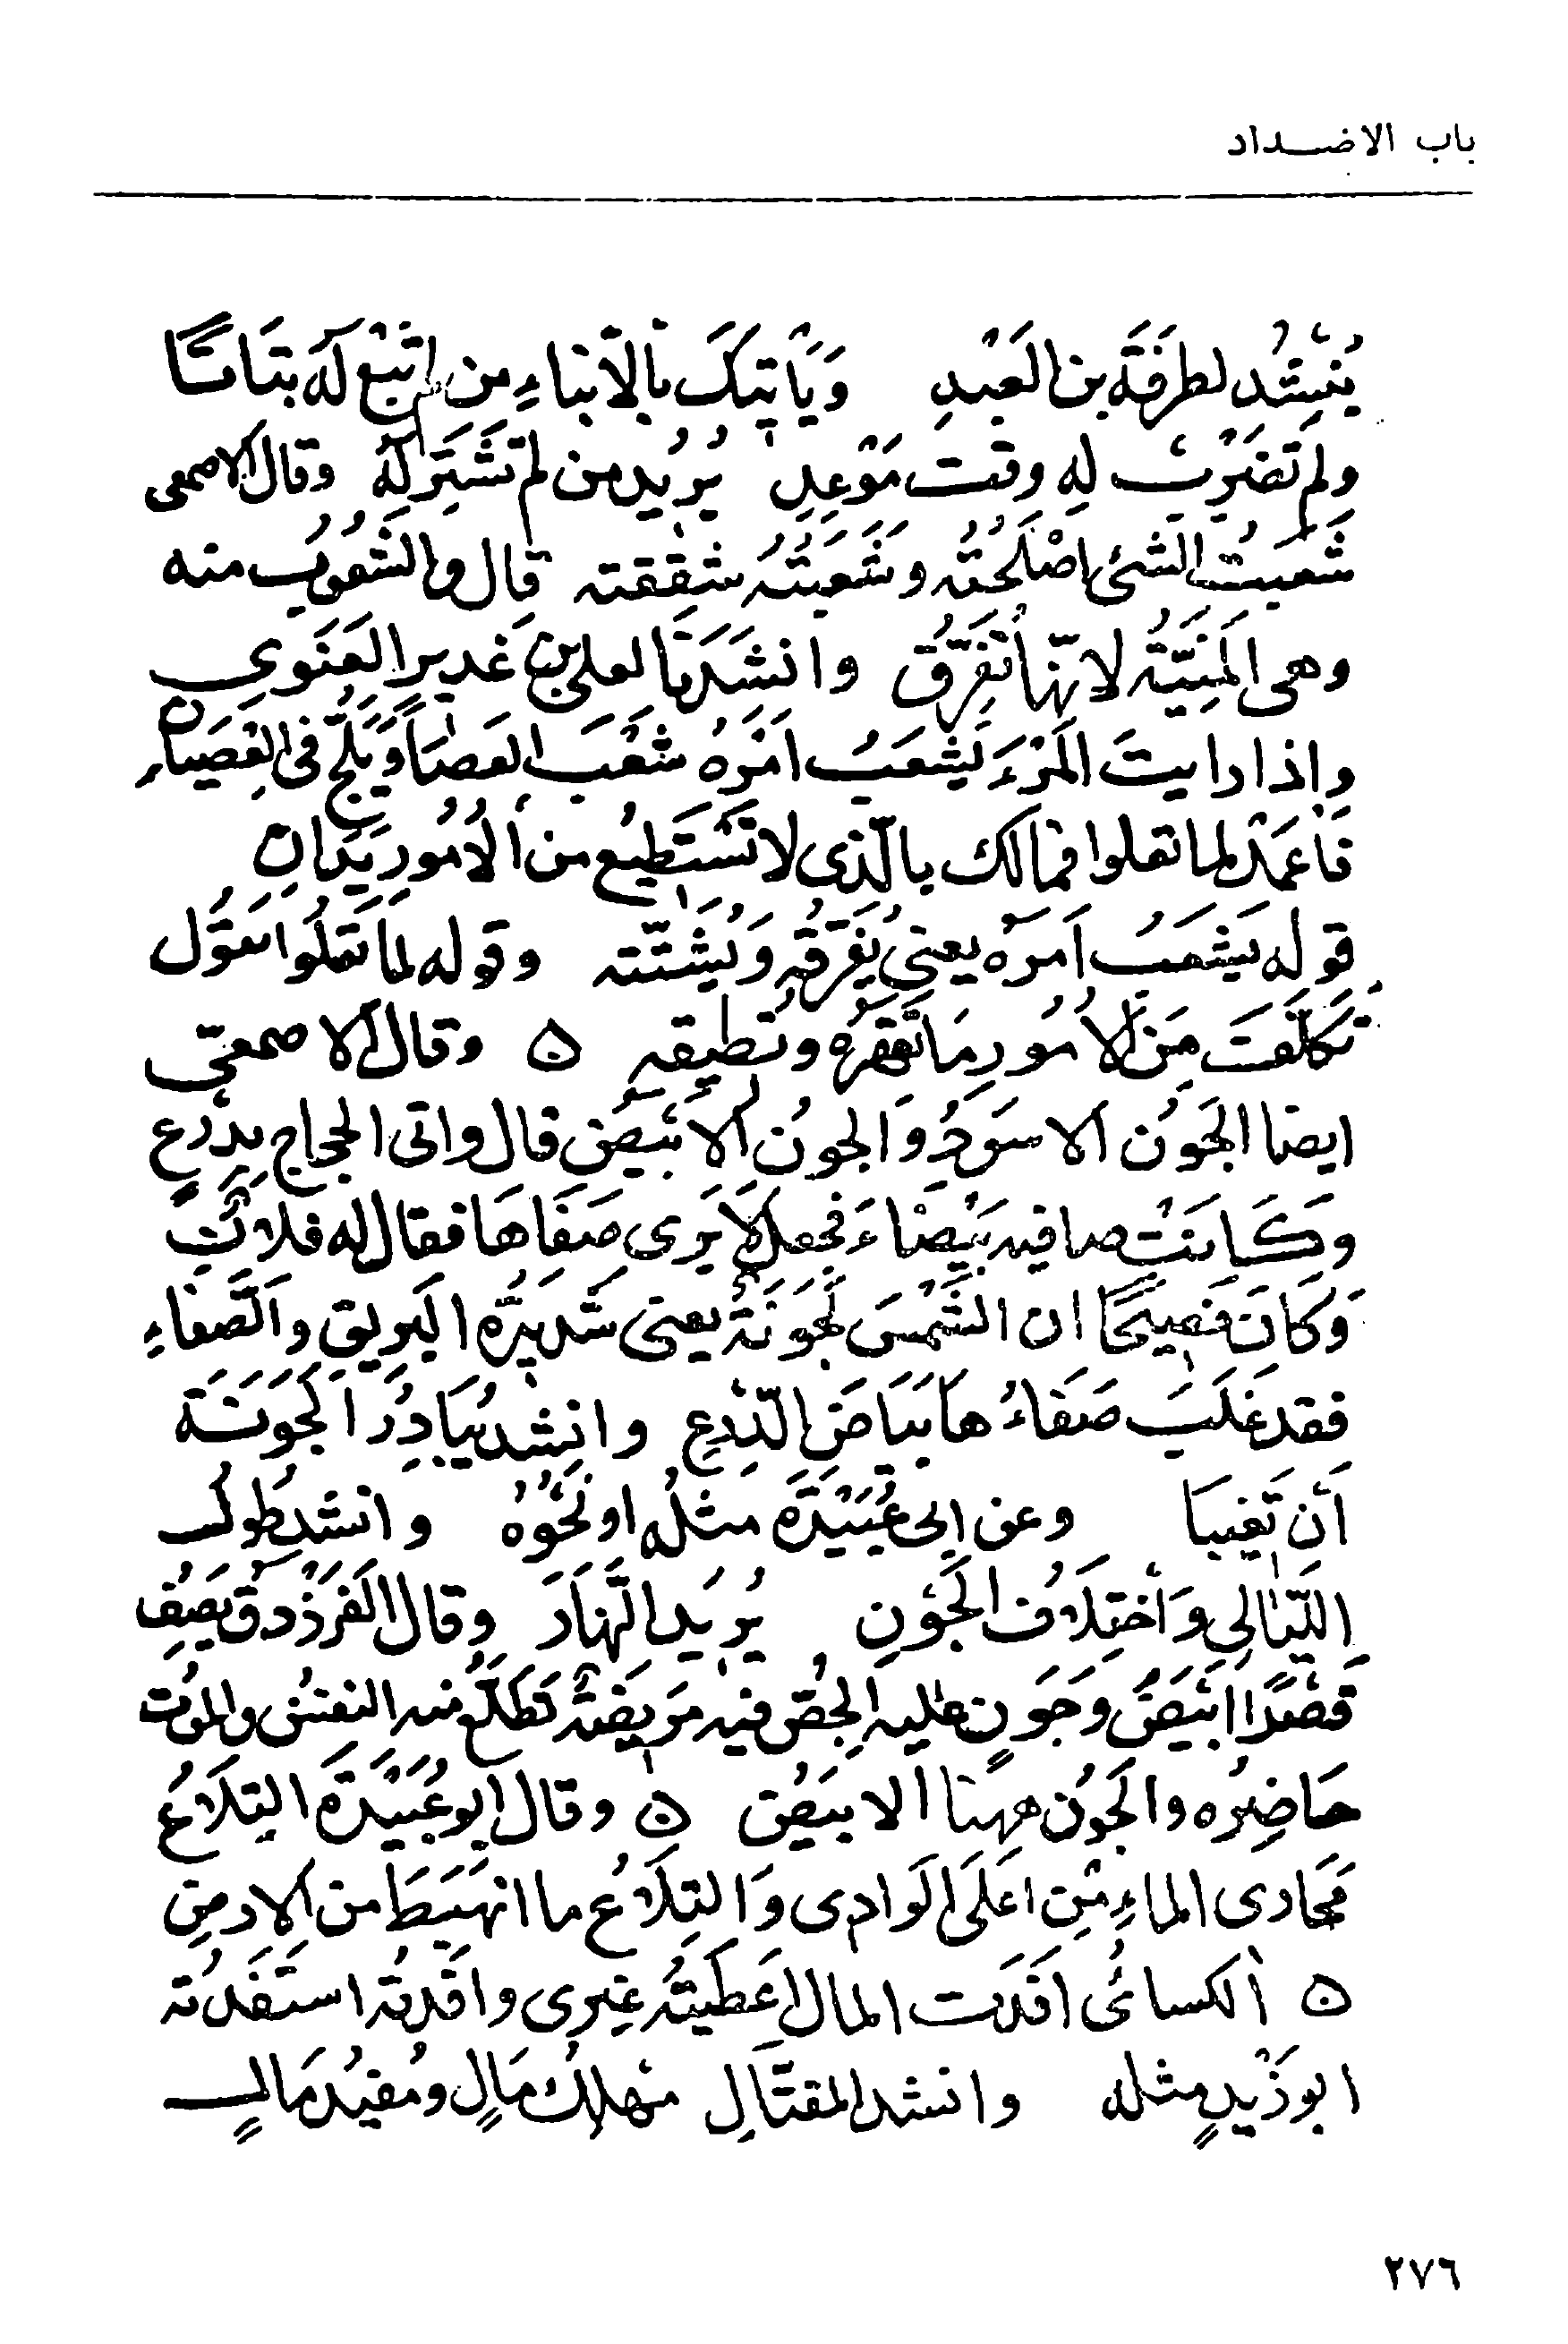 باب الاضداد
يُنْشِدُ لطرفَةَ بن العَبْدِ وَيَأْتِيكَ بالأنباءِ من لم تَبِعْ لَه بَتَاتًا
ولم تَضْرِبْ لهِ وقت مَوْعِدِ يُرِيد من لم تَشْتَرِ لَهُ وقال الاصمعى
شَعَبتُ الشئ اصْلَحْتُه وشَعَبْتُهُ شققته قال والشَعُوبُ منه
وهى المَنِيَّةُ لانّها تُفَرِّقُ وانشَدَنَا لعلى بن غَديرٍ الغَنَوي
واذا رايتَ المَرْءَ يَشْعَبُ امْرَهُ شَعْبَ العَصَا وَيَلِجُّ فى العِصيَانِ
فَاعْمَدْ لما تعلوا فمالك بالّذى لا تَسْتَطِيعُ من الأمُورِ يَدَانِ
قوله يَشْعَبُ اَمرَه يعنى يُفَرِّقُه وَيُشَتِّته وقوله لما تَعْلُوا يَقُول
تَكَلَّفْ مِنَ الأمُورِ مَا تَقْهَرُه وتُطِيقه ۝ وقال الاصمعى
ايضا الجَوْن الاسوَدُ وَالجون الأبْيَضُ قال واتى الحجاج بِدِرْعٍ
وكَانَتْ صافيه بَيْضَاءَ فجعل لَا يَرى صَفَاهَا فقال له فلانٌ
وَكَانَ فَصِيحًا ان الشَّمْسَ لَجَوْنَةٌ يعنى شَدِيدَة البَرِيق وَالصَّفاءِ
فقد غَلَبَ صَفَاءُهَا بَيَاضَ الدِّرْعِ وانشد يُبَادِرُ الجَوْنَةَ
أَن تَغِيبا وعن ابى عُبَيْدَةَ مثلُه او نَحْوُهُ وانشد طُولُ
اللّيَالِي وَاخْتِلَافُ الجَوْنِ يُرِيد النَّهَارَ وقال الفَرَزْدَق يَصِفُ
قَصْرًا ابْيَضَ وجَوْنٍ عليه الجِصُّ فيه مَرِيضَةٌ تَطَلَّعُ منه النفسُ والموْت
حَاضِرُه والجَوْن ههنا الابيَضُ ۝ وقال ابو عُبَيْدَةَ التِلَاعُ
مَجَارى الماءِ مِنْ اعلَى الوَادى وَالتِلَاعُ ما انهَبَطَ من الارضِ
۝ الكسائى افَدْت المال اعَطَيتُه غيرى وافَدتُه استَفَدتُه
ابو زَيْدٍ مثله وانشد للقتّالِ مُهْلِكُ مَالٍ ومُفيدُ مَالٍ
٢٧٦